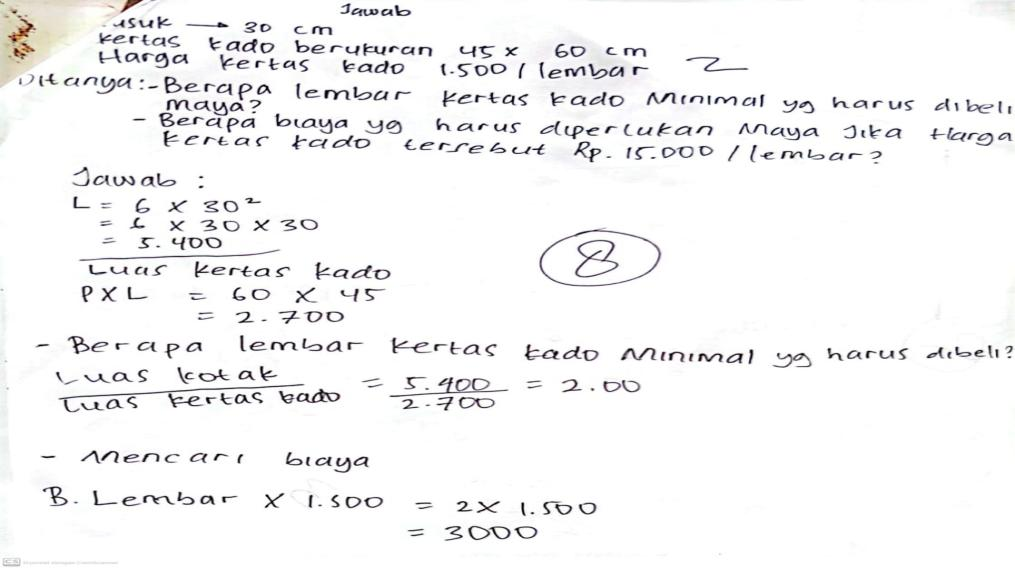 Jawab
usuk → 30 cm
kertas kado berukuran 45 x 60 cm
Harga kertas kado 1.500 / lembar
2
Ditanya :- Berapa lembar kertas kado Minimal yg harus dibeli
maya?
- Berapa biaya yg harus diperlukan Maya Jika Harga
kertas kado tersebut Rp. 15.000 / lembar?
Jawab :
L = 6 x 30²
= 6 x 30 x 30
= 5.400
Luas kertas kado
P X L = 60 X 45
= 2.700
8
- Berapa lembar kertas kado Minimal yg harus dibeli?
Luas kotak / Luas kertas kado = 5.400 / 2.700 = 2.00
- Mencari biaya
B. Lembar X 1.500 = 2 X 1.500
= 3000
CS